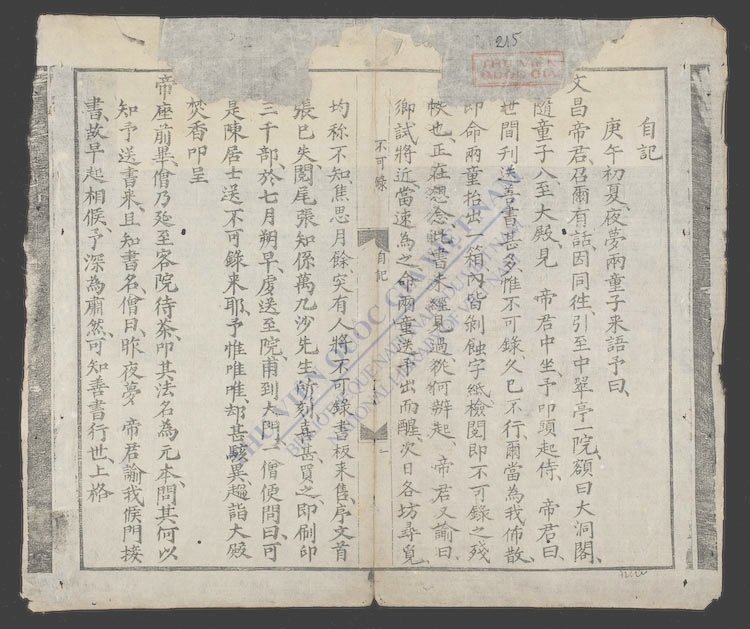 215
THƯ VIỆN
QUỐC GIA
自記
庚午初夏、夜夢兩童子来語予曰、
文昌帝君、召爾有話、因同徃、引至中翠亭一院、額曰大洞閣、
隨童子入至大殿見 帝君中坐、予叩頭起侍、帝君曰、
世間刊送善書甚多、惟不可錄、久已不行、爾當為我佈散、
即命兩童抬出一箱、內皆剝蝕字紙、檢閱即不可錄之殘
帙也、正在想念、此書未經見過、從何辦起、帝君又諭曰、
鄉試將近、當速為之、命兩童送予出而醒、次日各坊尋覓、
不可錄
自記
一
均称不知、焦思月餘、突有人將不可錄書板来售、序文首
張已失、閱尾張知係萬九沙先生所刻、喜甚買之、即刷印
三千部、於七月朔早、虔送至院、甫到大門、一僧便問曰、可
是陳居士送不可錄来耶、予惟唯唯、却甚駭異、趨詣大殿
焚香叩呈
帝座前畢、僧乃延至客院待茶、叩其法名為元本、問其何以
知予送書来、且知書名、僧曰、昨夜夢 帝君諭我候門接
書、故早起相候、予深為肅然、可知善書行世、上格
THƯ VIỆN QUỐC GIA VIỆT NAM
BIBLIOTHEQUE NATIONALE DU VIETNAM
NATIONAL LIBRARY OF VIETNAM